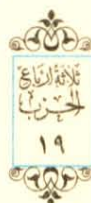 ثلاثة أرباع
الحزب
١٩